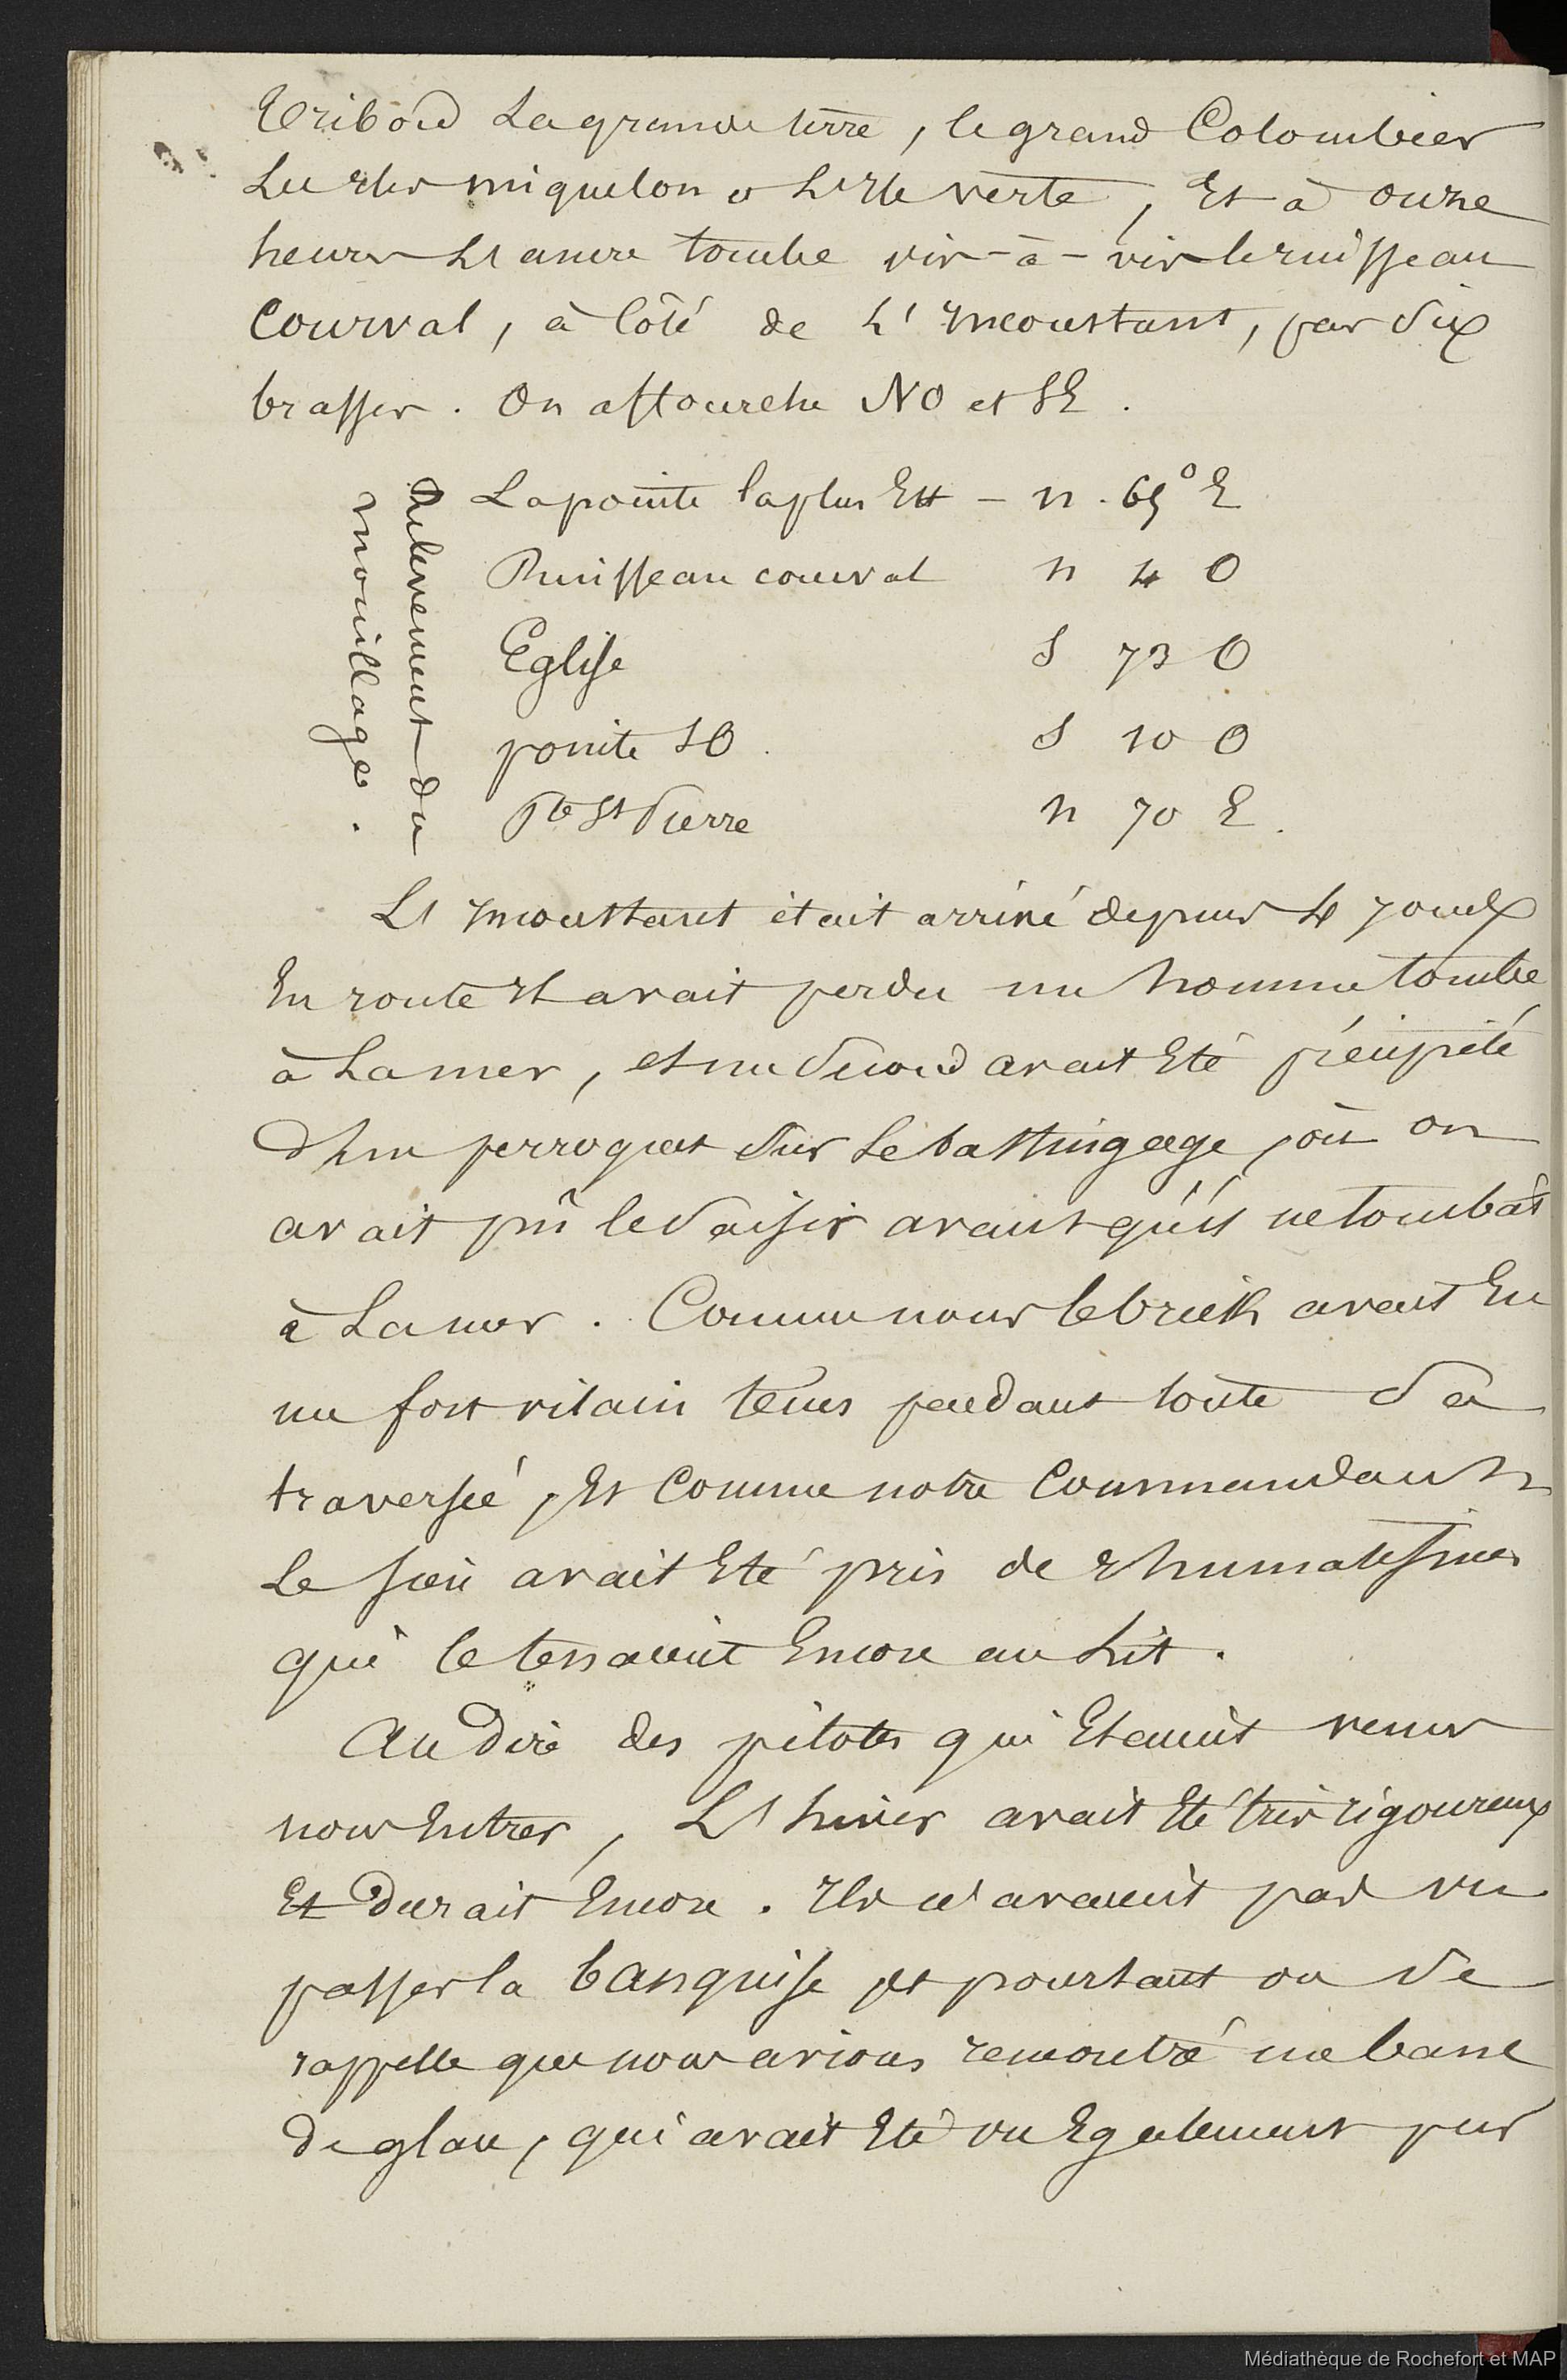 Tribord La grande terre, le grand Colombier
Les Iles Miquelon & L'Ile verte, Et à onze
heures L'ancre tombe vis-à-vis le ruisseau
Courval, à Côté de L'Inconstant, par Six
brasses. On affourche NO et SE.
Relèvement du
mouillage.
La pointe la plus Est - N. 65° E
Ruisseau courval N 4 O
Eglise S 73 O
pointe SO. S 10 O
Pte St Pierre N 70 E.
L'Inconstant était arrivé depuis 4 jours
En route Il avait perdu un homme tombé
à La mer, et un Second avait Eté précipité
d'un perroquet Sur Le bastingage, où on
avait pû le Saisir avant qu'il ne tombât
à La mer. Comme nous le brick avait Eu
un fort vilain tems pendant toute Sa
traversée, Et Comme notre Commandant
Le Sien avait Eté pris de rhumatismes
qui le tenaient Encore au Lit.
Au dire des pilotes qui Etaient venus
nous Entrer, L'hiver avait Eté très rigoureux
Et durait Encore. Ils n'avaient pas vu
passer la banquise et pourtant on Se
rappelle que nous avions rencontré un banc
de glace, qui avait Eté vu Egalement par
Médiathèque de Rochefort et MAP